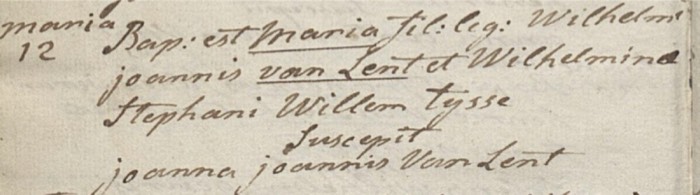 maria
12
Bap: est maria fil: leg: Wilhelmi
joannis van Lent et Wilhelmina
Stephani Willem Tysse
Suscepit
joanna joannis Van Lent